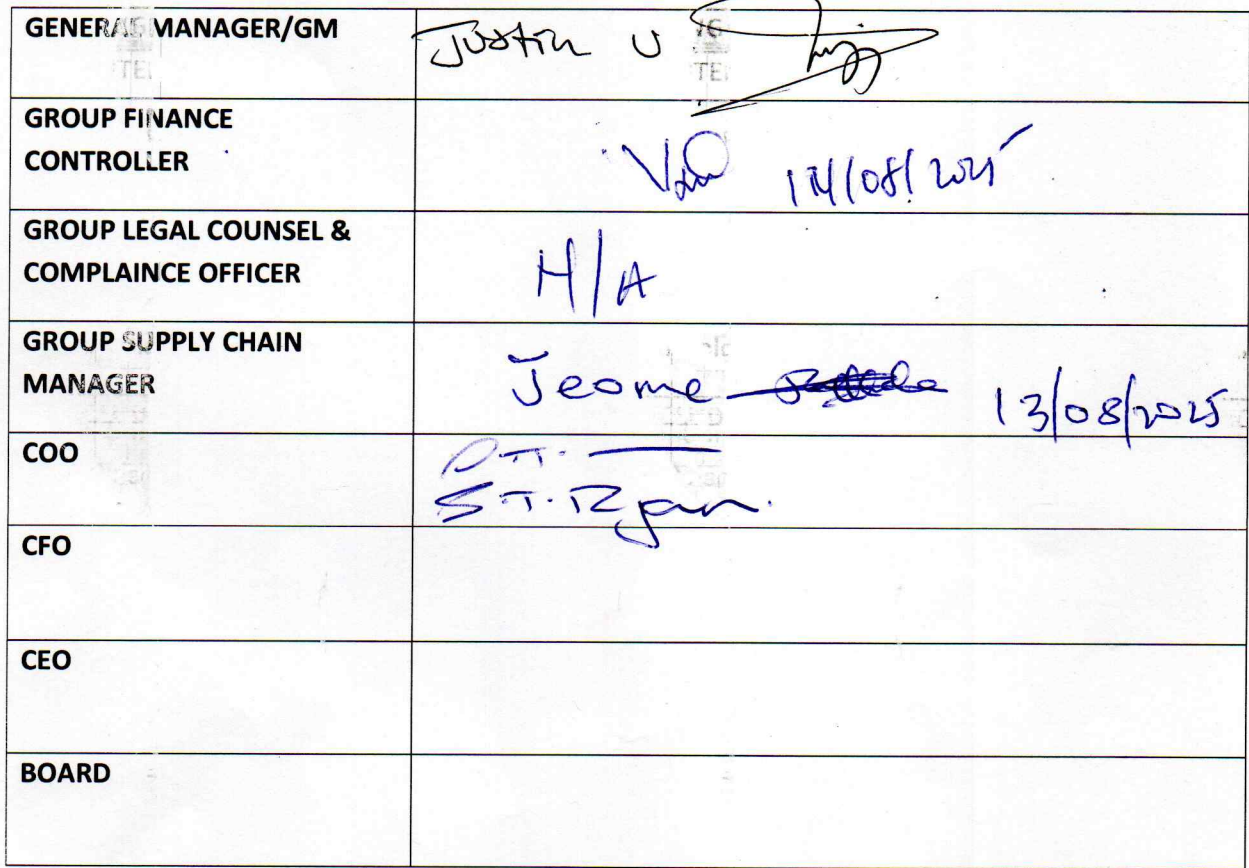 GENERAL MANAGER/GM
Justin U
GROUP FINANCE
CONTROLLER
14/08/2025
GROUP LEGAL COUNSEL &
COMPLAINCE OFFICER
H/A
GROUP SUPPLY CHAIN
MANAGER
Jeome
13/08/2025
COO
S.T.Ryan.
CFO
CEO
BOARD